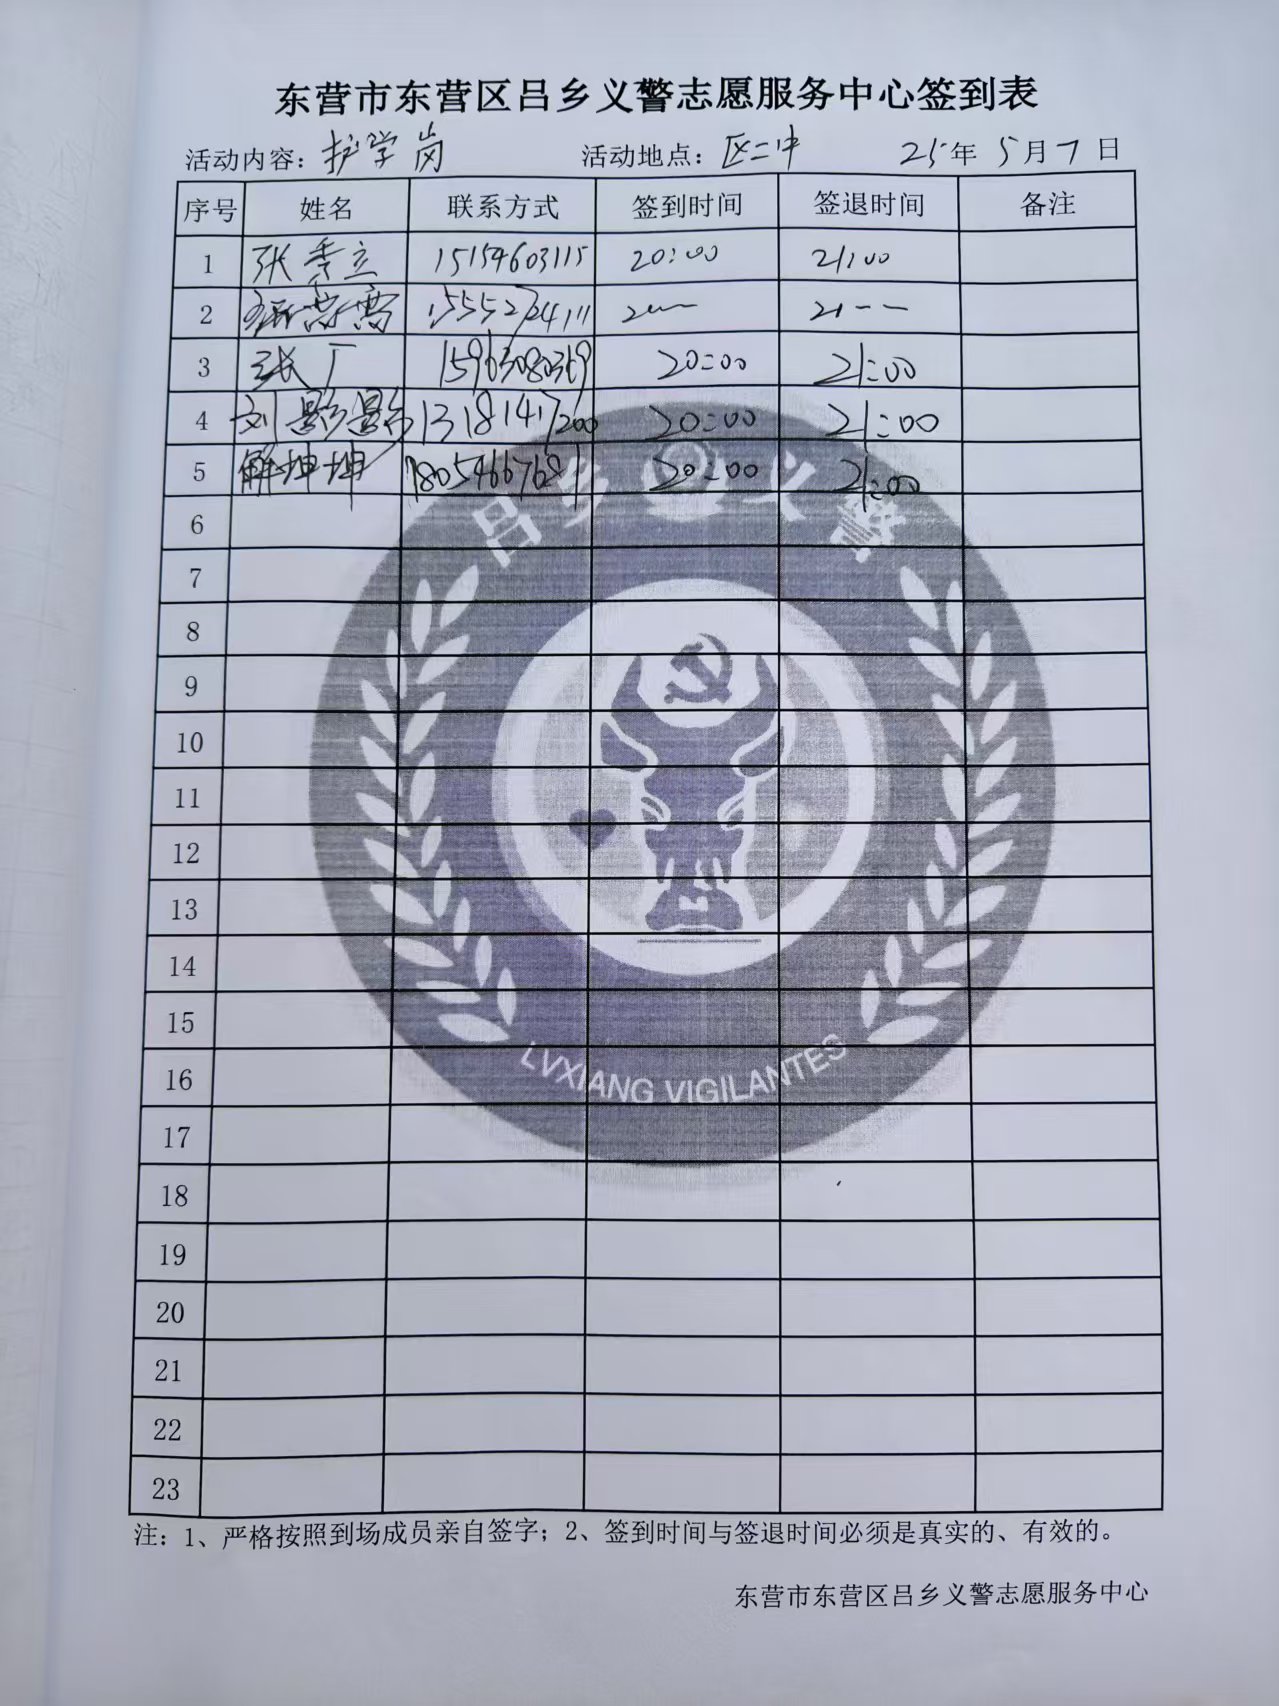 东营市东营区吕乡义警志愿服务中心签到表
活动内容：护学岗 活动地点：区二中 25年5月7日
序号 姓名 联系方式 签到时间 签退时间 备注
1 张秀立 15154603115 20:00 21:00
2
3 张厂 15963080369 20:00 21:00
4 刘影影 13181417200 20:00 21:00
5 解坤坤 18054667681 20:00 21:00
6
7
8
9
10
11
12
13
14
15
16
17
18
19
20
21
22
23
吕乡义警
LVXIANG VIGILANTES
注：1、严格按照到场成员亲自签字；2、签到时间与签退时间必须是真实的、有效的。
东营市东营区吕乡义警志愿服务中心